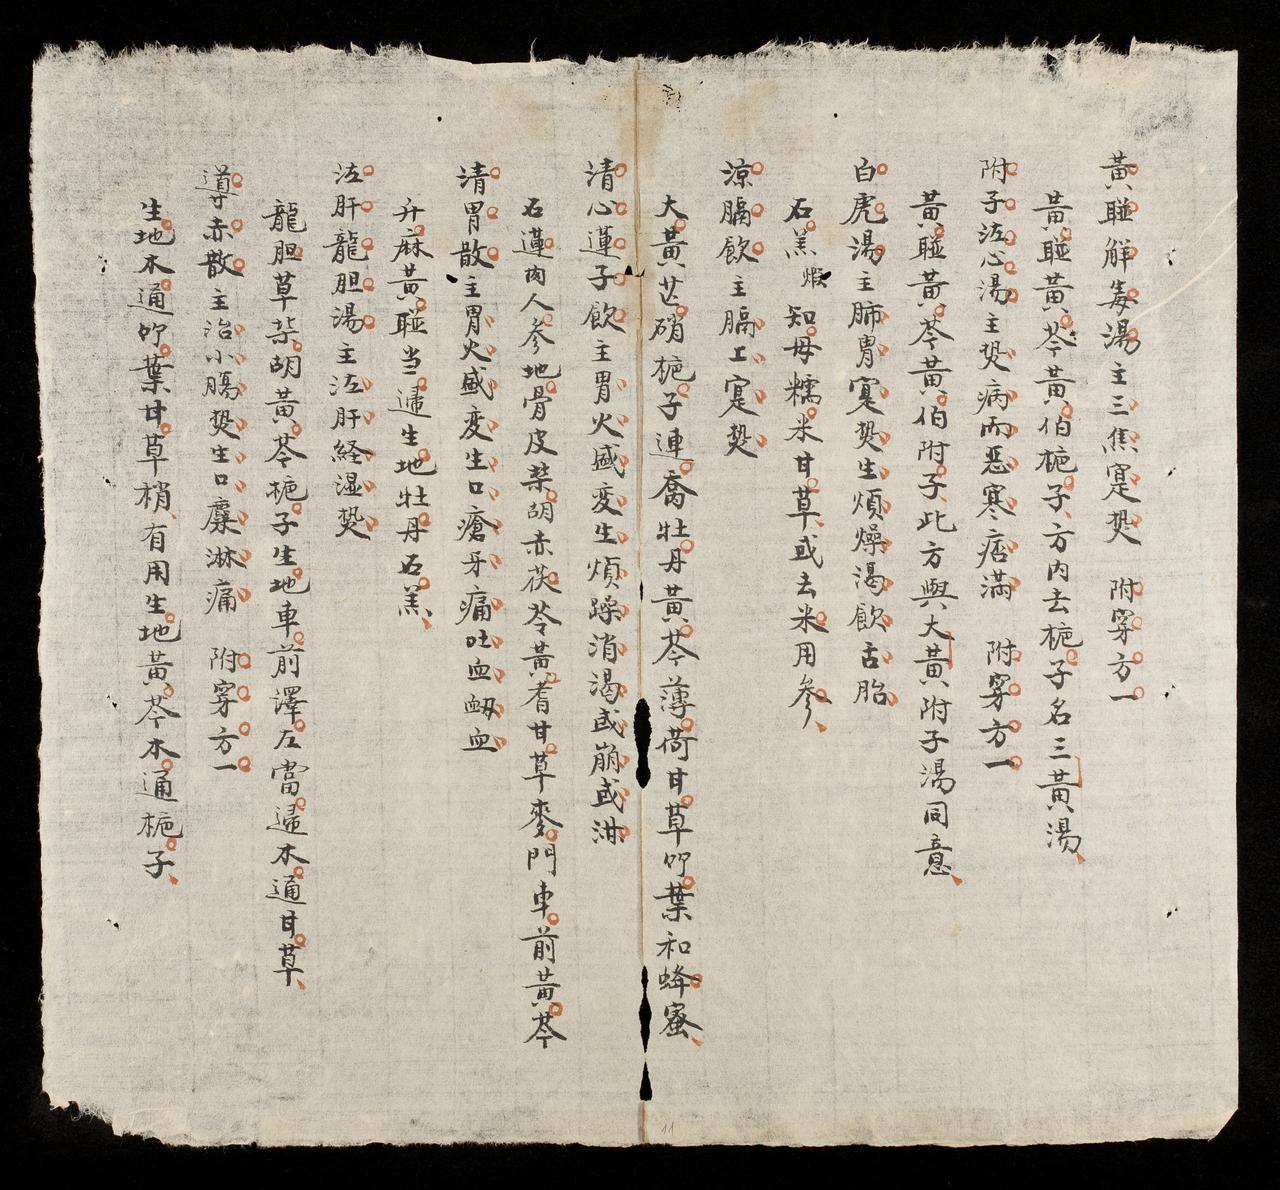 黃聯解毒湯主三焦寔𤍠 附穿方一
黃聯黃芩黃伯梔子方內去梔子名三黃湯
附子泻心湯主𤍠病而惡寒痞滿 附穿方一
黃聯黃芩黃伯附子此方與大黃附子湯同意
白虎湯主肺胃寔𤍠生煩燥渴飲舌胎
石羔煅知母糯米甘草或去米用參
涼膈飲主膈上寔𤍠
大黃芒硝梔子連喬牡丹黃芩薄荷甘草竹葉和蜂蜜
清心蓮子飲主胃火盛变生煩躁消渴或崩或泔
石蓮肉人參地骨皮柴胡赤茯苓黃耆甘草麥門車前黃芩
清胃散主胃火盛变生口瘡牙痛吐血衂血
升麻黃聯当歸生地牡丹石羔
泻肝龍胆湯主泻肝経湿𤍠
龍胆草柴胡黃芩梔子生地車前澤左當歸木通甘草
導赤散主治小腸𤍠生口糜淋痛 附穿方一
生地木通竹葉甘草梢有用生地黃芩木通梔子
11